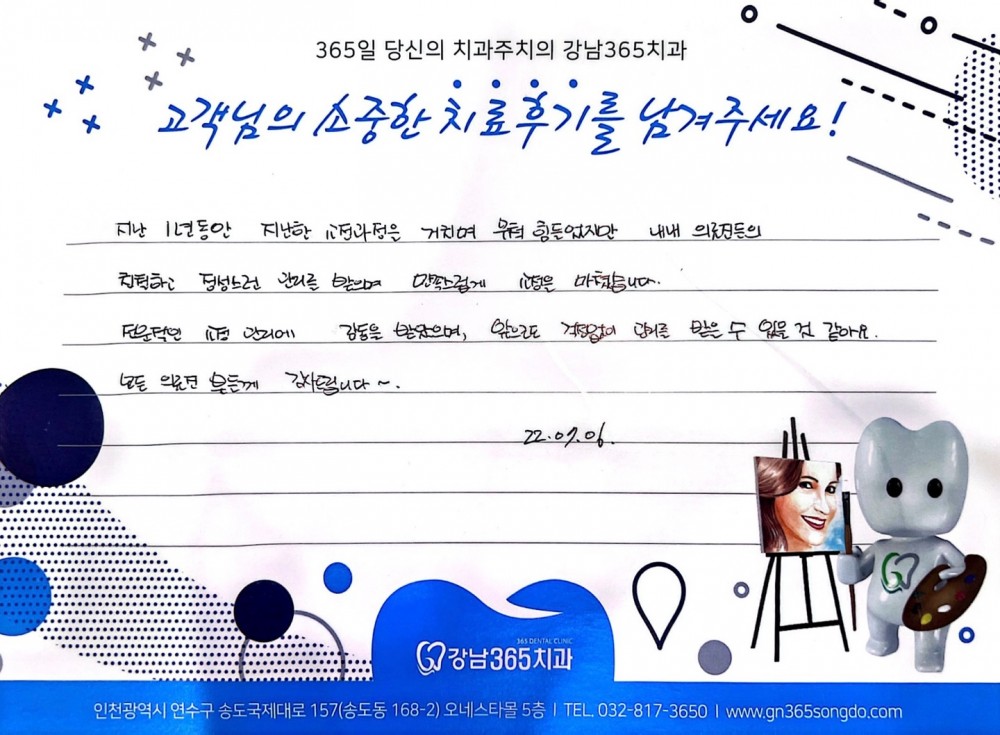 365일 당신의 치과주치의 강남365치과
고객님의 소중한 치료후기를 남겨주세요!
지난 1년동안 지난한 교정과정을 거치며 무척 힘들었지만 내내 의료진들의
친절하고 정성스런 관리를 받으며 만족스럽게 교정을 마쳤습니다.
전문적인 교정 관리에 감동을 받았으며, 앞으로도 걱정없이 관리를 받을 수 있을 것 같아요.
모든 의료진 분들께 감사드립니다~.
22.07.06.
365 DENTAL CLINIC
강남365치과
인천광역시 연수구 송도국제대로 157(송도동 168-2) 오네스타몰 5층 | TEL. 032-817-3650 | www.gn365songdo.com